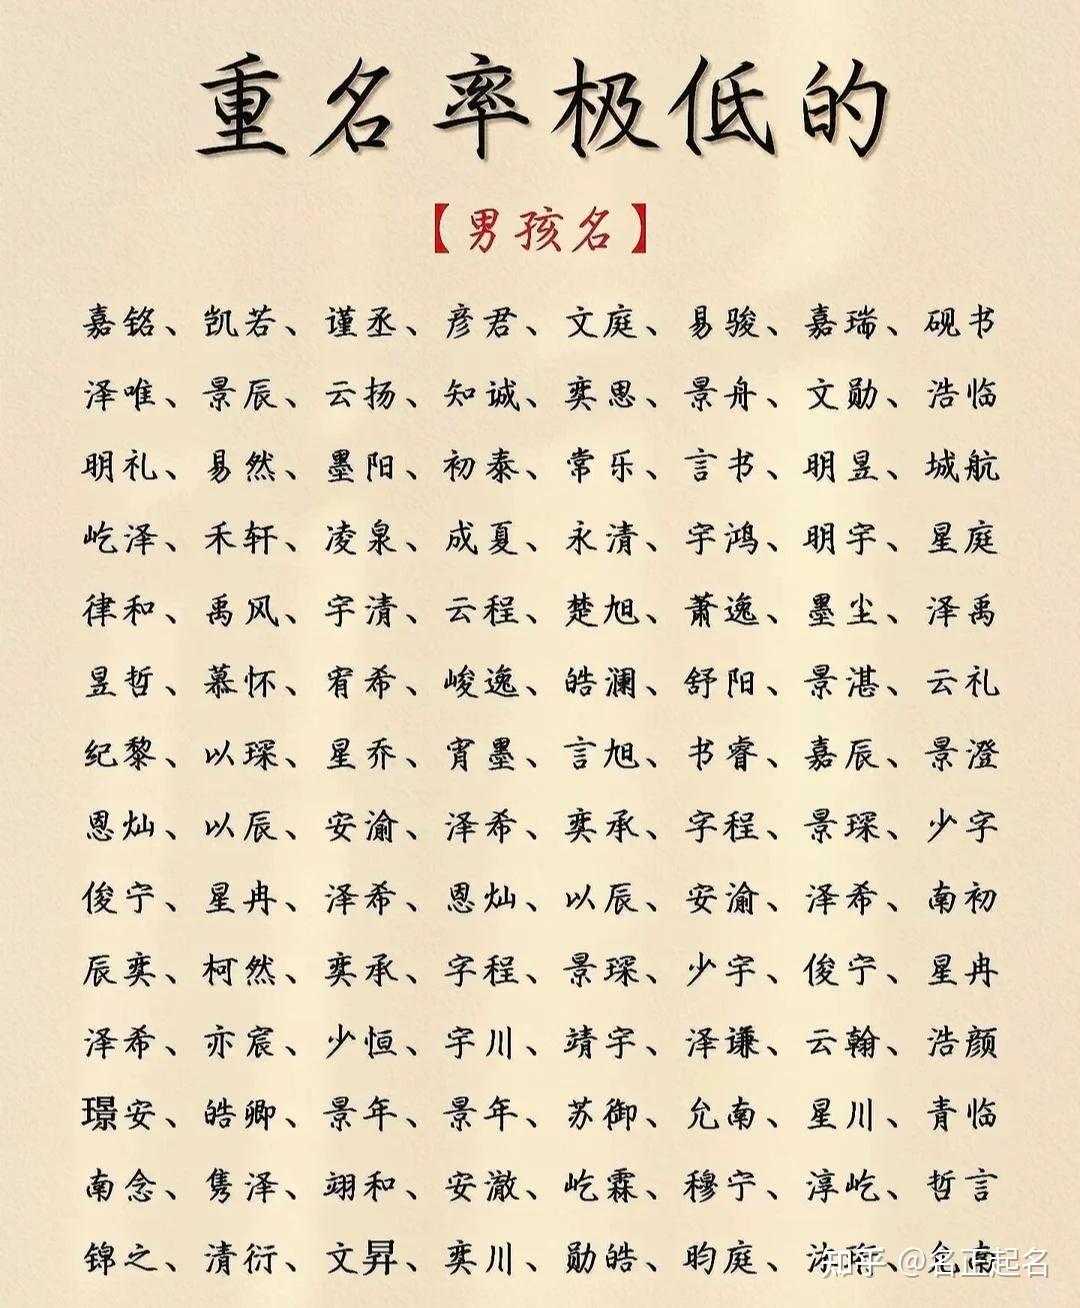 重名率极低的
【男孩名】
嘉铭、凯若、谨丞、彦君、文庭、易骏、嘉瑞、砚书
泽唯、景辰、云扬、知诚、奕思、景舟、文勋、浩临
明礼、易然、墨阳、初泰、常乐、言书、明昱、城航
屹泽、禾轩、凌泉、成夏、永清、宇鸿、明宇、星庭
律和、禹风、宇清、云程、楚旭、萧逸、墨尘、泽禹
昱哲、慕怀、宥希、峻逸、皓澜、舒阳、景湛、云礼
纪黎、以琛、星乔、宵墨、言旭、书睿、嘉辰、景澄
恩灿、以辰、安渝、泽希、奕承、字程、景琛、少字
俊宁、星冉、泽希、恩灿、以辰、安渝、泽希、南初
辰奕、柯然、奕承、字程、景琛、少宇、俊宁、星冉
泽希、亦宸、少恒、宇川、靖宇、泽谦、云翰、浩颜
璟安、皓卿、景年、景年、苏御、允南、星川、青临
南念、隽泽、翊和、安澈、屹霖、穆宁、淳屹、哲言
锦之、清衍、文昇、奕川、勋皓、昀庭、
知乎 @名正起名